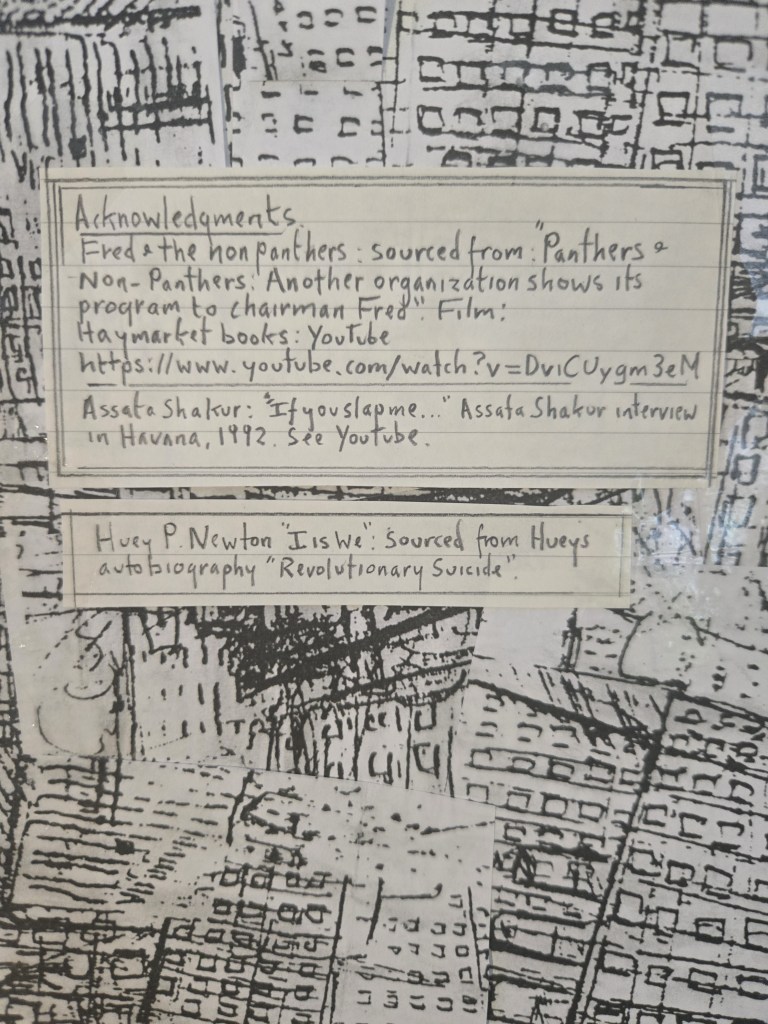 Acknowledgments
Fred & the non panthers : sourced from : "Panthers &
Non-Panthers: Another organization shows its
program to chairman Fred". Film:
Haymarket books: YouTube
https://www.youtube.com/watch?v=DviCUygm3eM
Assata Shakur: "If you slap me..." Assata Shakur interview
in Havana, 1992. See YouTube.
Huey P. Newton "I is We": Sourced from Hueys
autobiography "Revolutionary Suicide".